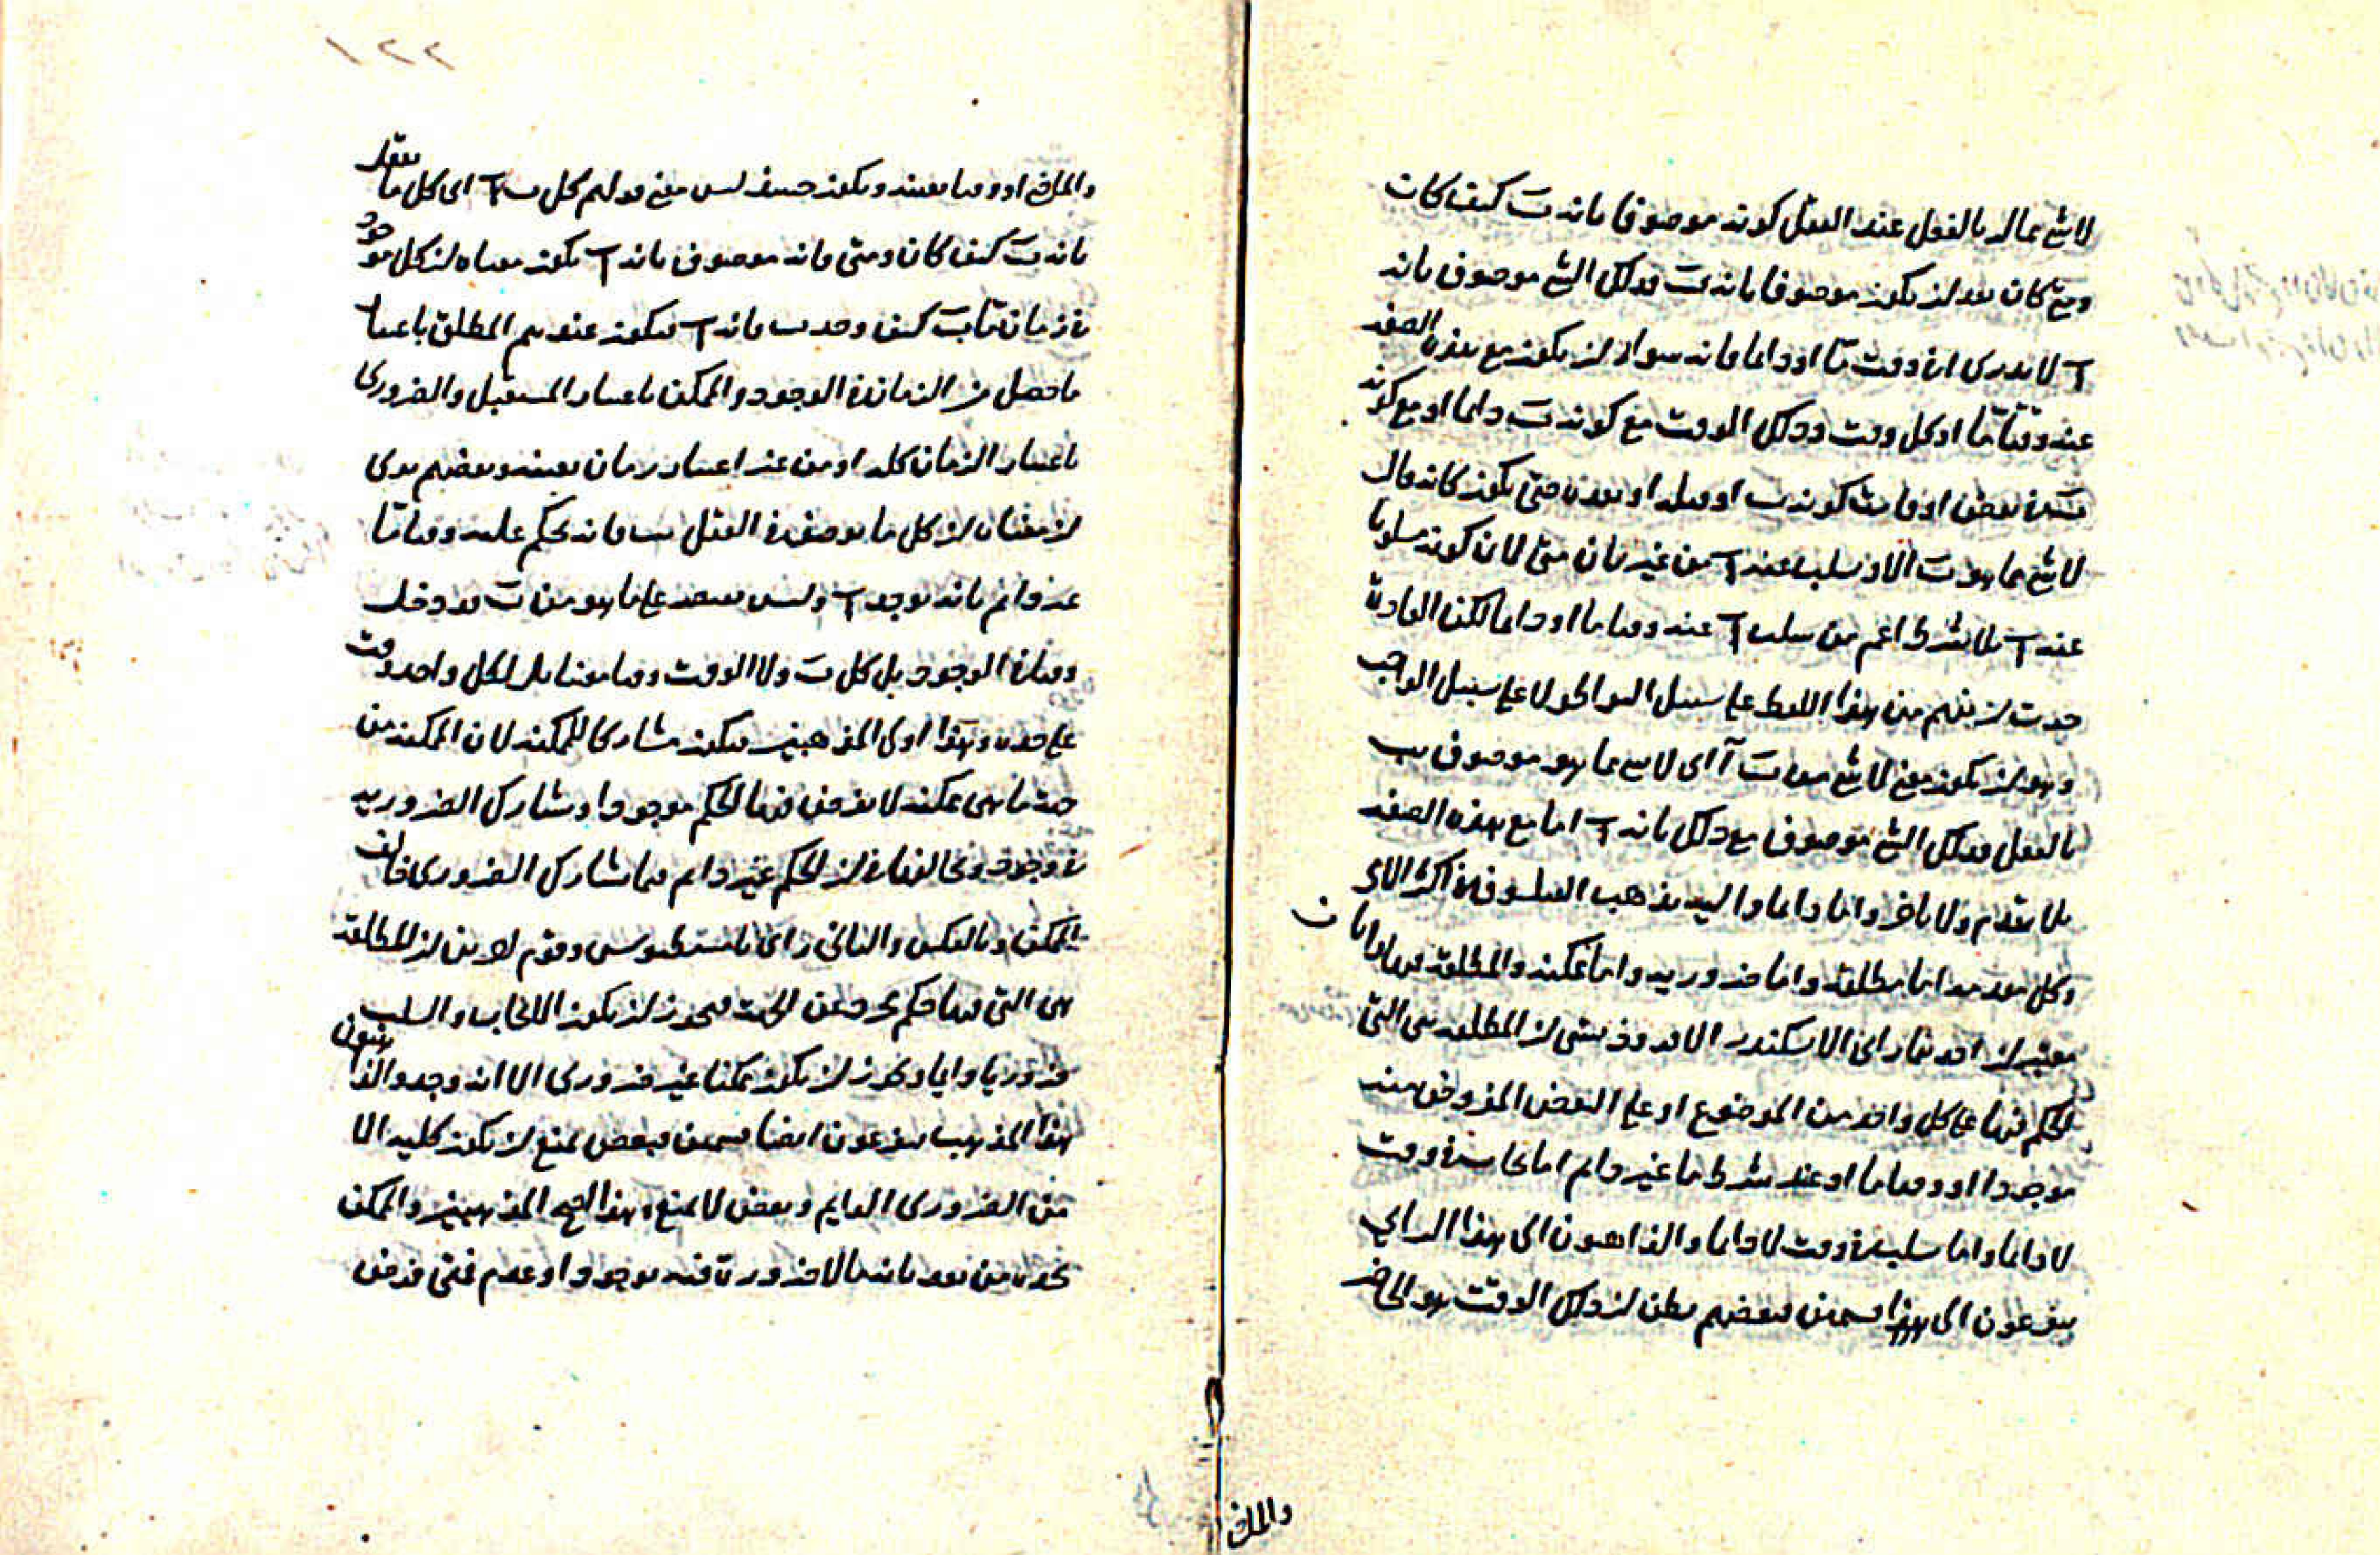 لا شئ مما له بالفعل عند العقل كونه موصوفا بانه ب كيف كان
ومتى كان بعد ان يكون موصوفا بانه ب فذلك الشئ موصوف بانه
آ لا يدرى انه وقت ما او دائما فانه سواء ان يكون مع هذه الصفة
عنه وقتا ما او كل وقت وذلك الوقت مع كونه ب دائما او مع كونه
ب فى بعض اوقات كونه ب او قبله او بعده حتى يكون كانه قال
لا شئ مما هو ب الا وسلب عنه آ من غير بيان متى لان كونه مسلوبا
عنه آ بلا شرط اعم من سلب آ عنه وقتا ما او دائما لكن العادة
جرت ان يفهم من هذا اللفظ على سبيل لا على سبيل الواجب
وهو ان يكون معنى لا شئ من ب آ اى لا شئ مما هو موصوف بب
بالفعل فذلك الشئ موصوف مع ذلك بانه آ اما مع هذه الصفة
بلا تقدم ولا تاخر واما دائما واليه يذهب الفيلسوف فى اكثر
وكل مقدمة اما مطلقة واما ضرورية واما ممكنة والمطلقة فيها رايان
معتبران احدهما راى الاسكندر الافروديسى ان المطلقة هى التى
الحكم فيها على كل واحد من الموضوع او على البعض المفروض منه
موجودا او وقتا ما او عند شرط ما غير دائم اما ايجابه فى وقت
لا دائما واما سلبه فى وقت لا دائما والذاهبون الى هذا الراى
يتفرعون الى هذا قسمين بعضهم يظن ان ذلك الوقت هو الحاضر
والماضى
١٢٢
والماضى او وقتا بعينه ويكون حينئذ ليس معنى قولهم كل ب آ اى كل ما يعقل
بانه ب كيف كان ومتى فانه موصوف بانه آ يكون معناه ان كل موجود
فى زمان ما ب كيف وجد ب فانه آ فيكون عندهم المطلق باعتبار
ما حصل من الزمان فى الوجود والممكن باعتبار المستقبل والضرورى
باعتبار الزمان كله او من غير اعتبار زمان بعينه وبعضهم يرى
ان معناه ان كل ما يوصف فى العقل بب فانه يحكم عليه وقتا ما
غير دائم بانه يوجد آ وليس يقتصر على ما هو من ب قد دخل
وقتا فى الوجود بل كل ب ولا الوقت وقتا معينا بل لكل واحد وقت
على حدة وهذا اولى المذهبين فيكون مشاركا للممكنة لان الممكنة من
حيث ما هى ممكنة لا يفرض فيها الحكم موجودا ويشارك الضرورية
فى وجوده ويخالفها فى ان الحكم غير دائم فبما يشارك الضرورى يخالف
الممكن وبالعكس والثانى راى ثامسطيوس وقوم اخرين ان المطلقة
هى التى فيها حكم مجرد عن الجهة فيجوز ان يكون الايجاب والسلب
ضروريا دائما ويجوز ان يكون ممكنا غير ضرورى الا انه وجد والذاهبون
هذا المذهب يتفرعون ايضا قسمين فبعض يمنع ان يكون كلية الا
من الضرورى الدائم وبعض لا يمنع وهذا اصح المذهبين والممكن
نحده من بعد بانه ما لا ضرورة فيه بوجود او عدم فمتى فرض